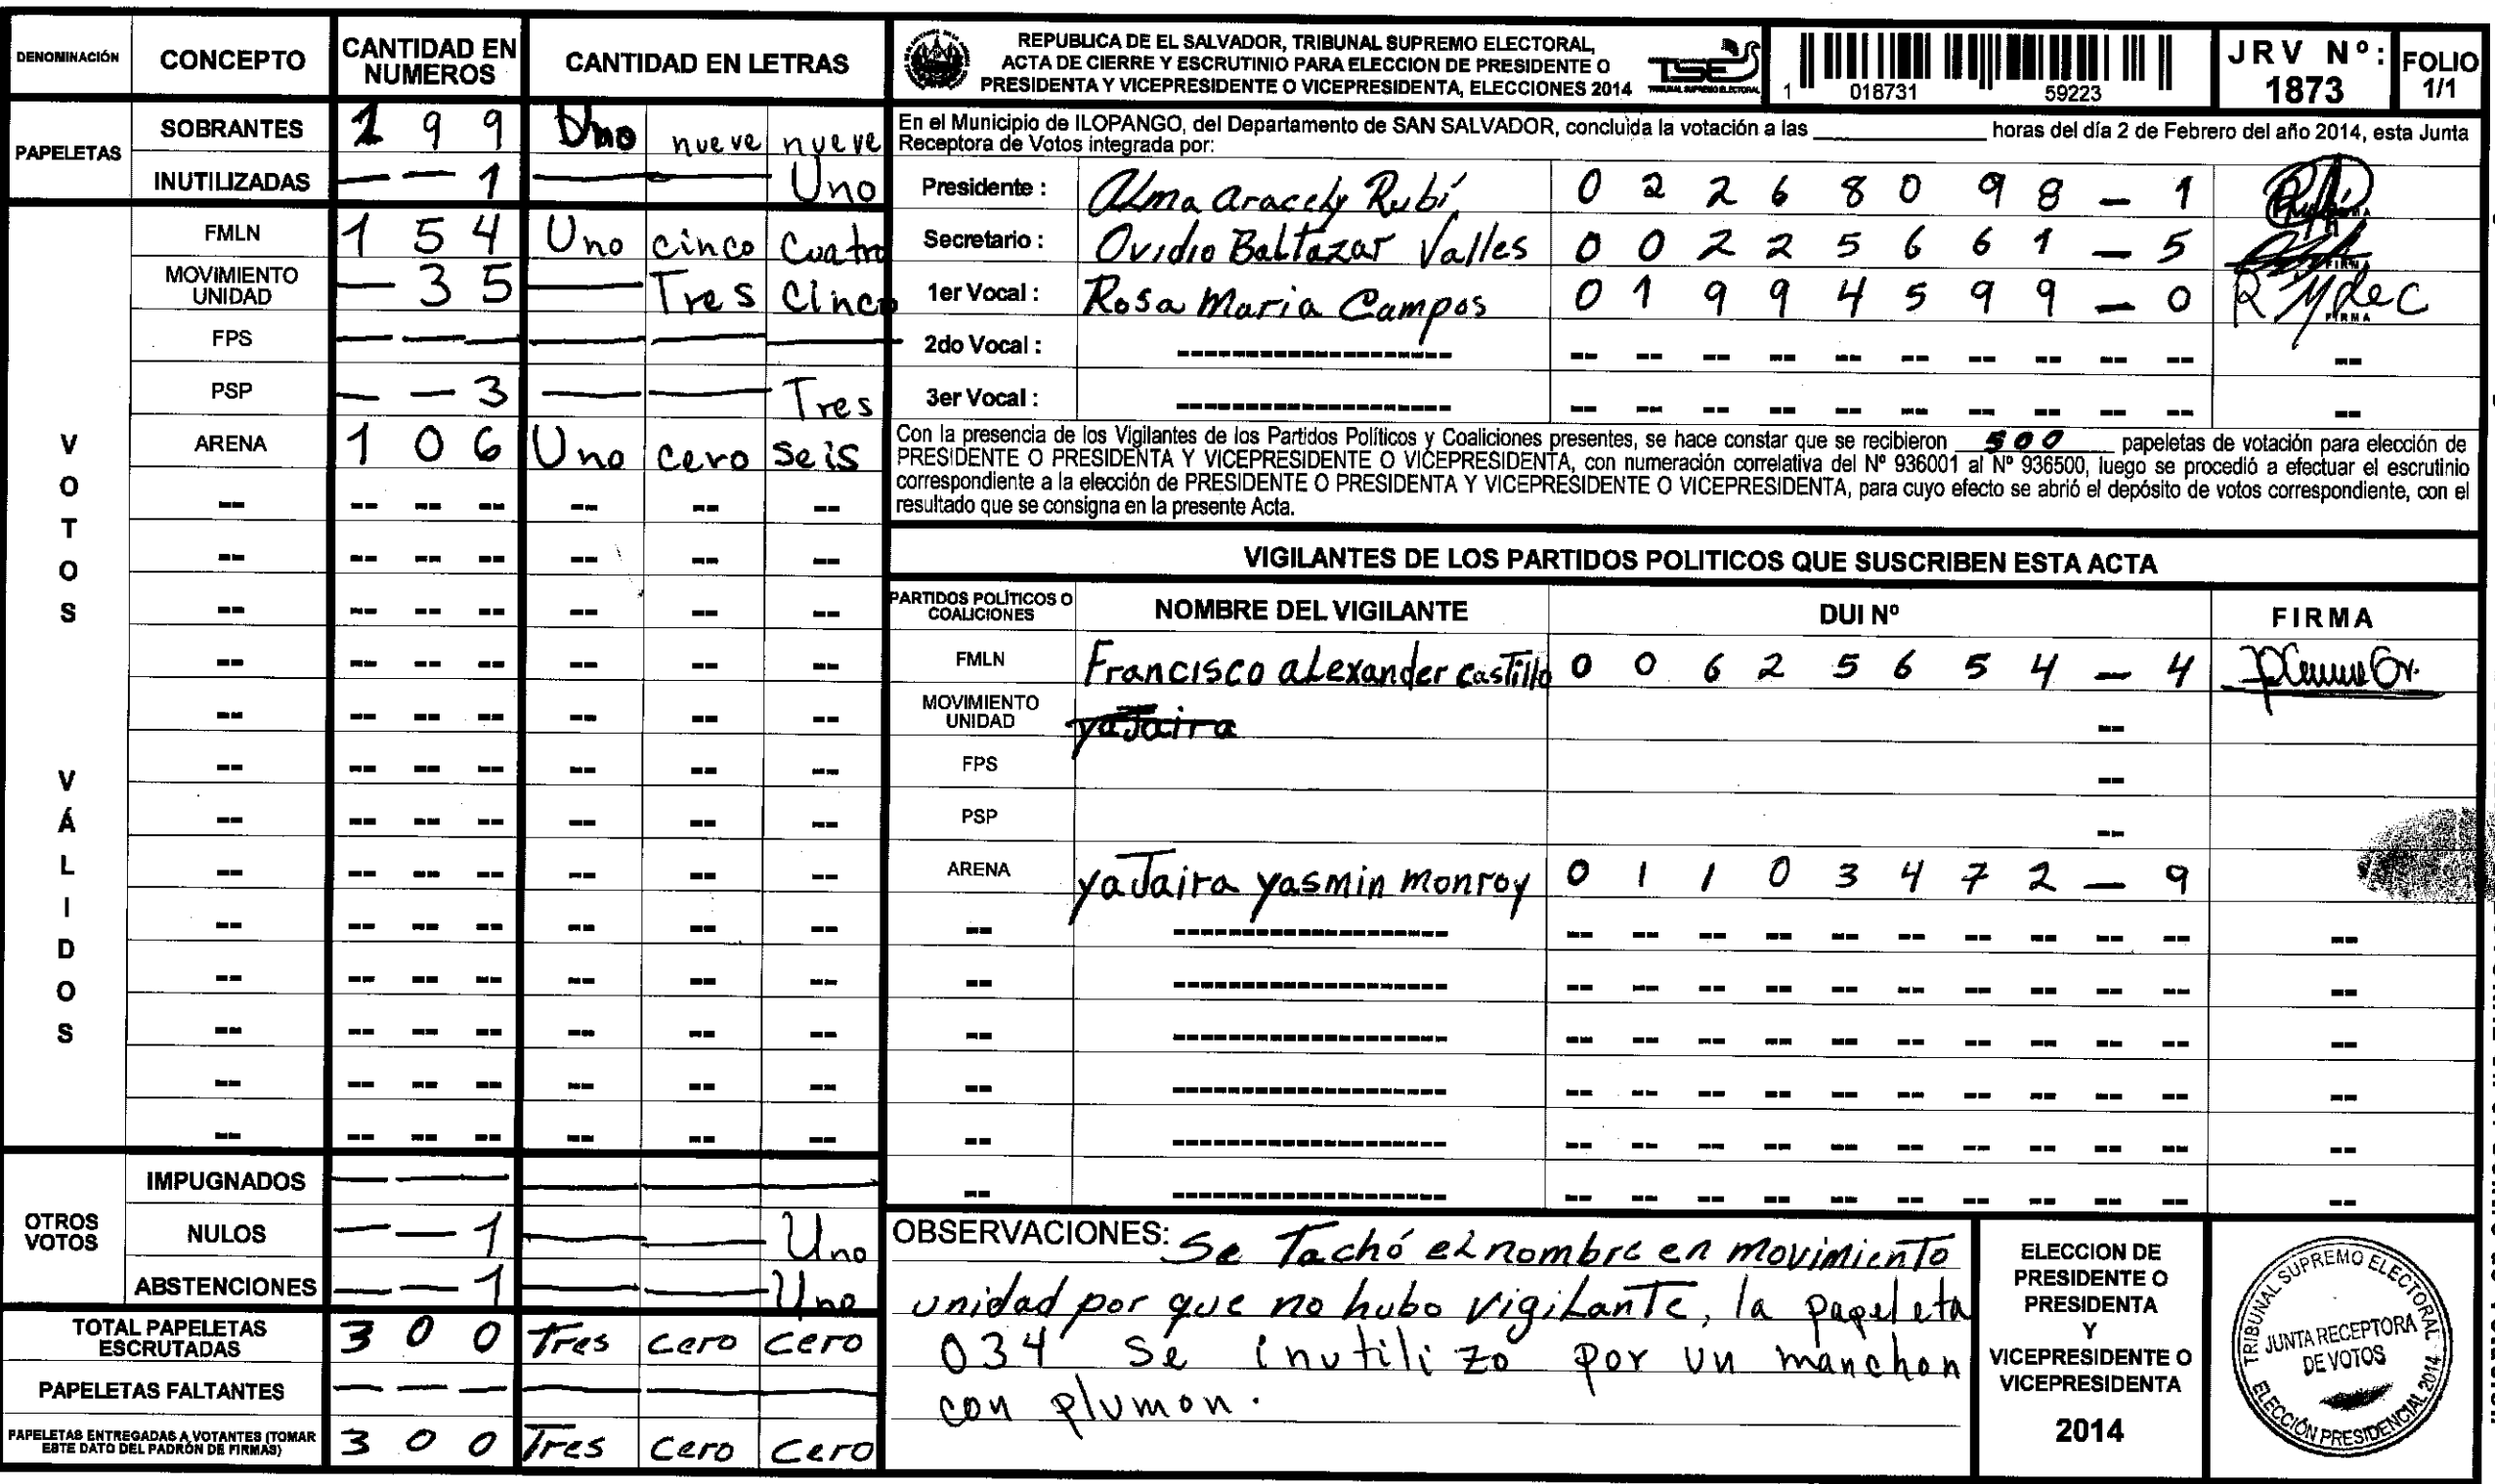 DENOMINACIÓN CONCEPTO CANTIDAD EN NUMEROS CANTIDAD EN LETRAS
PAPELETAS
SOBRANTES 1 9 9 Uno nueve nueve
INUTILIZADAS — — 1 — — Uno
VOTOS VÁLIDOS
FMLN 1 5 4 Uno cinco Cuatro
MOVIMIENTO UNIDAD — 3 5 — Tres Cinco
FPS — — — — — —
PSP — — 3 — — Tres
ARENA 1 0 6 Uno cero seis
-- -- -- -- -- -- --
-- -- -- -- -- -- --
-- -- -- -- -- -- --
-- -- -- -- -- -- --
-- -- -- -- -- -- --
-- -- -- -- -- -- --
-- -- -- -- -- -- --
-- -- -- -- -- -- --
-- -- -- -- -- -- --
-- -- -- -- -- -- --
-- -- -- -- -- -- --
-- -- -- -- -- -- --
-- -- -- -- -- -- --
OTROS VOTOS
IMPUGNADOS — — — — — —
NULOS — — 1 — — Uno
ABSTENCIONES — — 1 — — Uno
TOTAL PAPELETAS ESCRUTADAS 3 0 0 Tres cero cero
PAPELETAS FALTANTES — — — — — —
PAPELETAS ENTREGADAS A VOTANTES (TOMAR ESTE DATO DEL PADRÓN DE FIRMAS) 3 0 0 Tres cero cero
REPUBLICA DE EL SALVADOR, TRIBUNAL SUPREMO ELECTORAL,
ACTA DE CIERRE Y ESCRUTINIO PARA ELECCION DE PRESIDENTE O
PRESIDENTA Y VICEPRESIDENTE O VICEPRESIDENTA, ELECCIONES 2014
TSE
TRIBUNAL SUPREMO ELECTORAL
1 018731 59223
JRV Nº: 1873
FOLIO 1/1
En el Municipio de ILOPANGO, del Departamento de SAN SALVADOR, concluida la votación a las ____ horas del día 2 de Febrero del año 2014, esta Junta
Receptora de Votos integrada por:
Presidente : Alma Aracely Rubí 0 2 2 6 8 0 9 8 — 1
Secretario : Ovidio Baltazar Valles 0 0 2 2 5 6 6 1 — 5 FIRMA
1er Vocal : Rosa Maria Campos 0 1 9 9 4 5 9 9 — 0 FIRMA
2do Vocal : -------------------- -- -- -- -- -- -- -- -- -- -- --
3er Vocal : -------------------- -- -- -- -- -- -- -- -- -- -- --
Con la presencia de los Vigilantes de los Partidos Políticos y Coaliciones presentes, se hace constar que se recibieron 500 papeletas de votación para elección de
PRESIDENTE O PRESIDENTA Y VICEPRESIDENTE O VICEPRESIDENTA, con numeración correlativa del Nº 936001 al Nº 936500, luego se procedió a efectuar el escrutinio
correspondiente a la elección de PRESIDENTE O PRESIDENTA Y VICEPRESIDENTE O VICEPRESIDENTA, para cuyo efecto se abrió el depósito de votos correspondiente, con el
resultado que se consigna en la presente Acta.
VIGILANTES DE LOS PARTIDOS POLITICOS QUE SUSCRIBEN ESTA ACTA
PARTIDOS POLÍTICOS O COALICIONES NOMBRE DEL VIGILANTE DUI Nº FIRMA
FMLN Francisco aLexander Castillo 0 0 6 2 5 6 5 4 — 4
MOVIMIENTO UNIDAD yaJaira --
FPS --
PSP --
ARENA yaJaira yasmin monroy 0 1 1 0 3 4 7 2 — 9
-- -------------------- -- -- -- -- -- -- -- -- -- -- --
-- -------------------- -- -- -- -- -- -- -- -- -- -- --
-- -------------------- -- -- -- -- -- -- -- -- -- -- --
-- -------------------- -- -- -- -- -- -- -- -- -- -- --
-- -------------------- -- -- -- -- -- -- -- -- -- -- --
-- -------------------- -- -- -- -- -- -- -- -- -- -- --
OBSERVACIONES: Se Tachó eL nombre en movimiento
unidad por que no hubo vigiLante, la papeleta
034 Se inutilizo por un manchon
con plumon.
ELECCION DE
PRESIDENTE O
PRESIDENTA
Y
VICEPRESIDENTE O
VICEPRESIDENTA
2014
TRIBUNAL SUPREMO ELECTORAL
JUNTA RECEPTORA
DE VOTOS
ELECCIÓN PRESIDENCIAL 2014